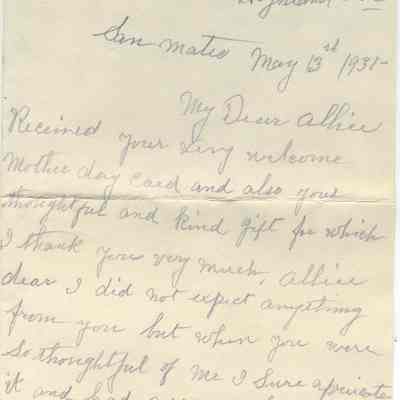 San Mateo May 13rd 1935-
My Dear Allice
Received your very welcome
Mother day card and also your
thoughtful and kind gift for which
I thank you very much, Allice
dear I did not expect anything
from you but when you were
So thoughtful of me I Sure apriciate
it and